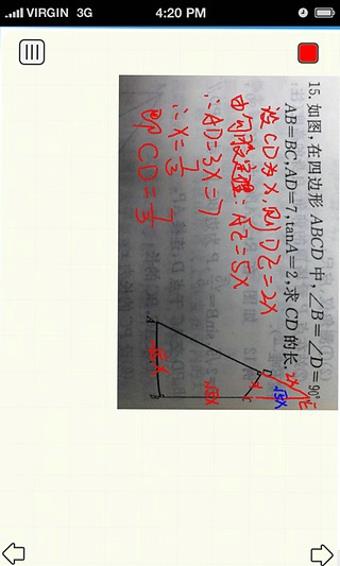 VIRGIN 3G 4:20 PM
15. 如图,在四边形 ABCD 中,∠B=∠D=90°
AB=BC,AD=7,tanA=2,求 CD 的长.
设CD为X,则DE=2X
由勾股定理:AE=5X
∴AD=3X=7
∴X=7/3
即CD=7/3
A
B
C
D
E
X
2X
√5X
√5X
√5X